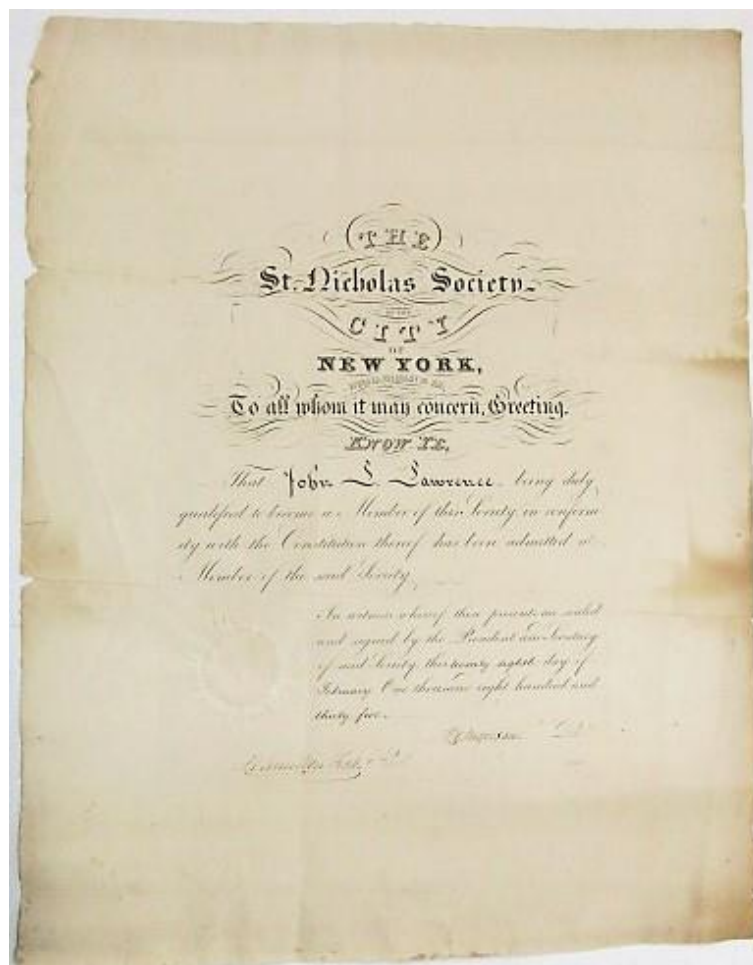 THE
St. Nicholas Society
OF THE
CITY
OF
NEW YORK,
To all whom it may concern, Greeting.
KNOW YE,
That John L. Lawrence being duly
qualified to become a Member of this Society in conform
ity with the Constitution thereof has been admitted a
Member of the said Society
In witness whereof these presents are sealed
and signed by the President and Secretary
of said Society this twenty eighth day of
February One thousand eight hundred and
thirty five.